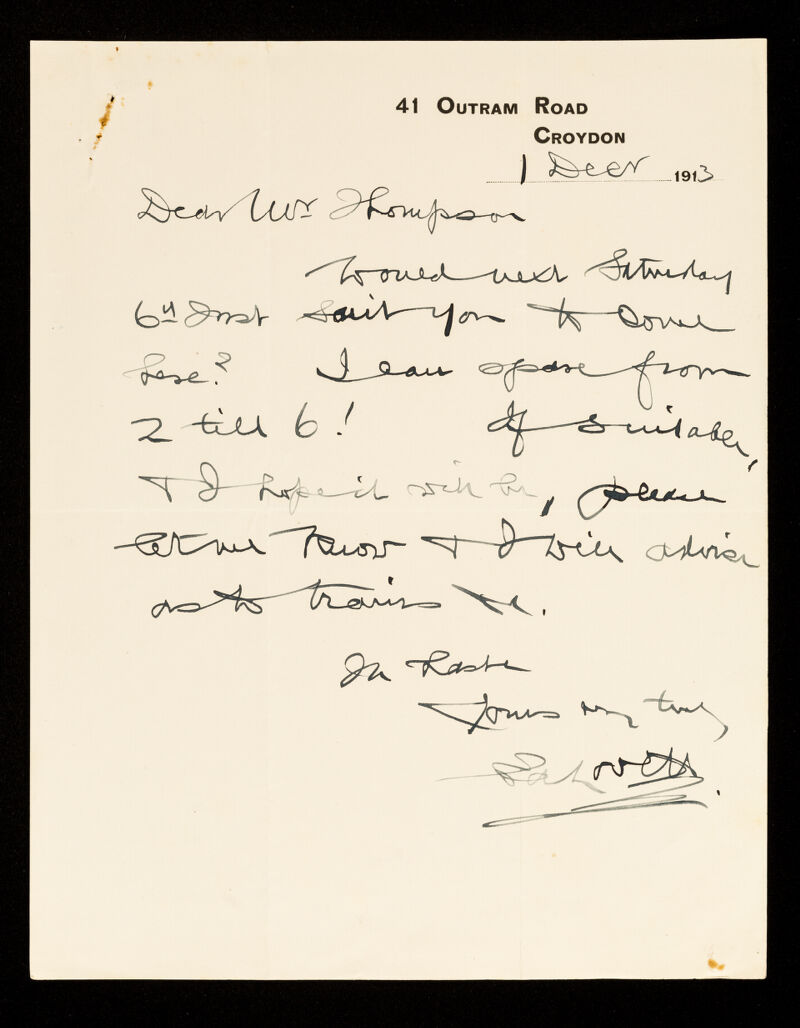 41 OUTRAM ROAD
CROYDON
1 Decr 1913
Dear Mr Thompson
Would next Saturday
6th Inst suit you to come
here? I can spare from
2 till 6! If suitable,
+ I hope it will be, please
let me know + I will advise
as to trains &c.
In haste
Yours very truly
Lovett.